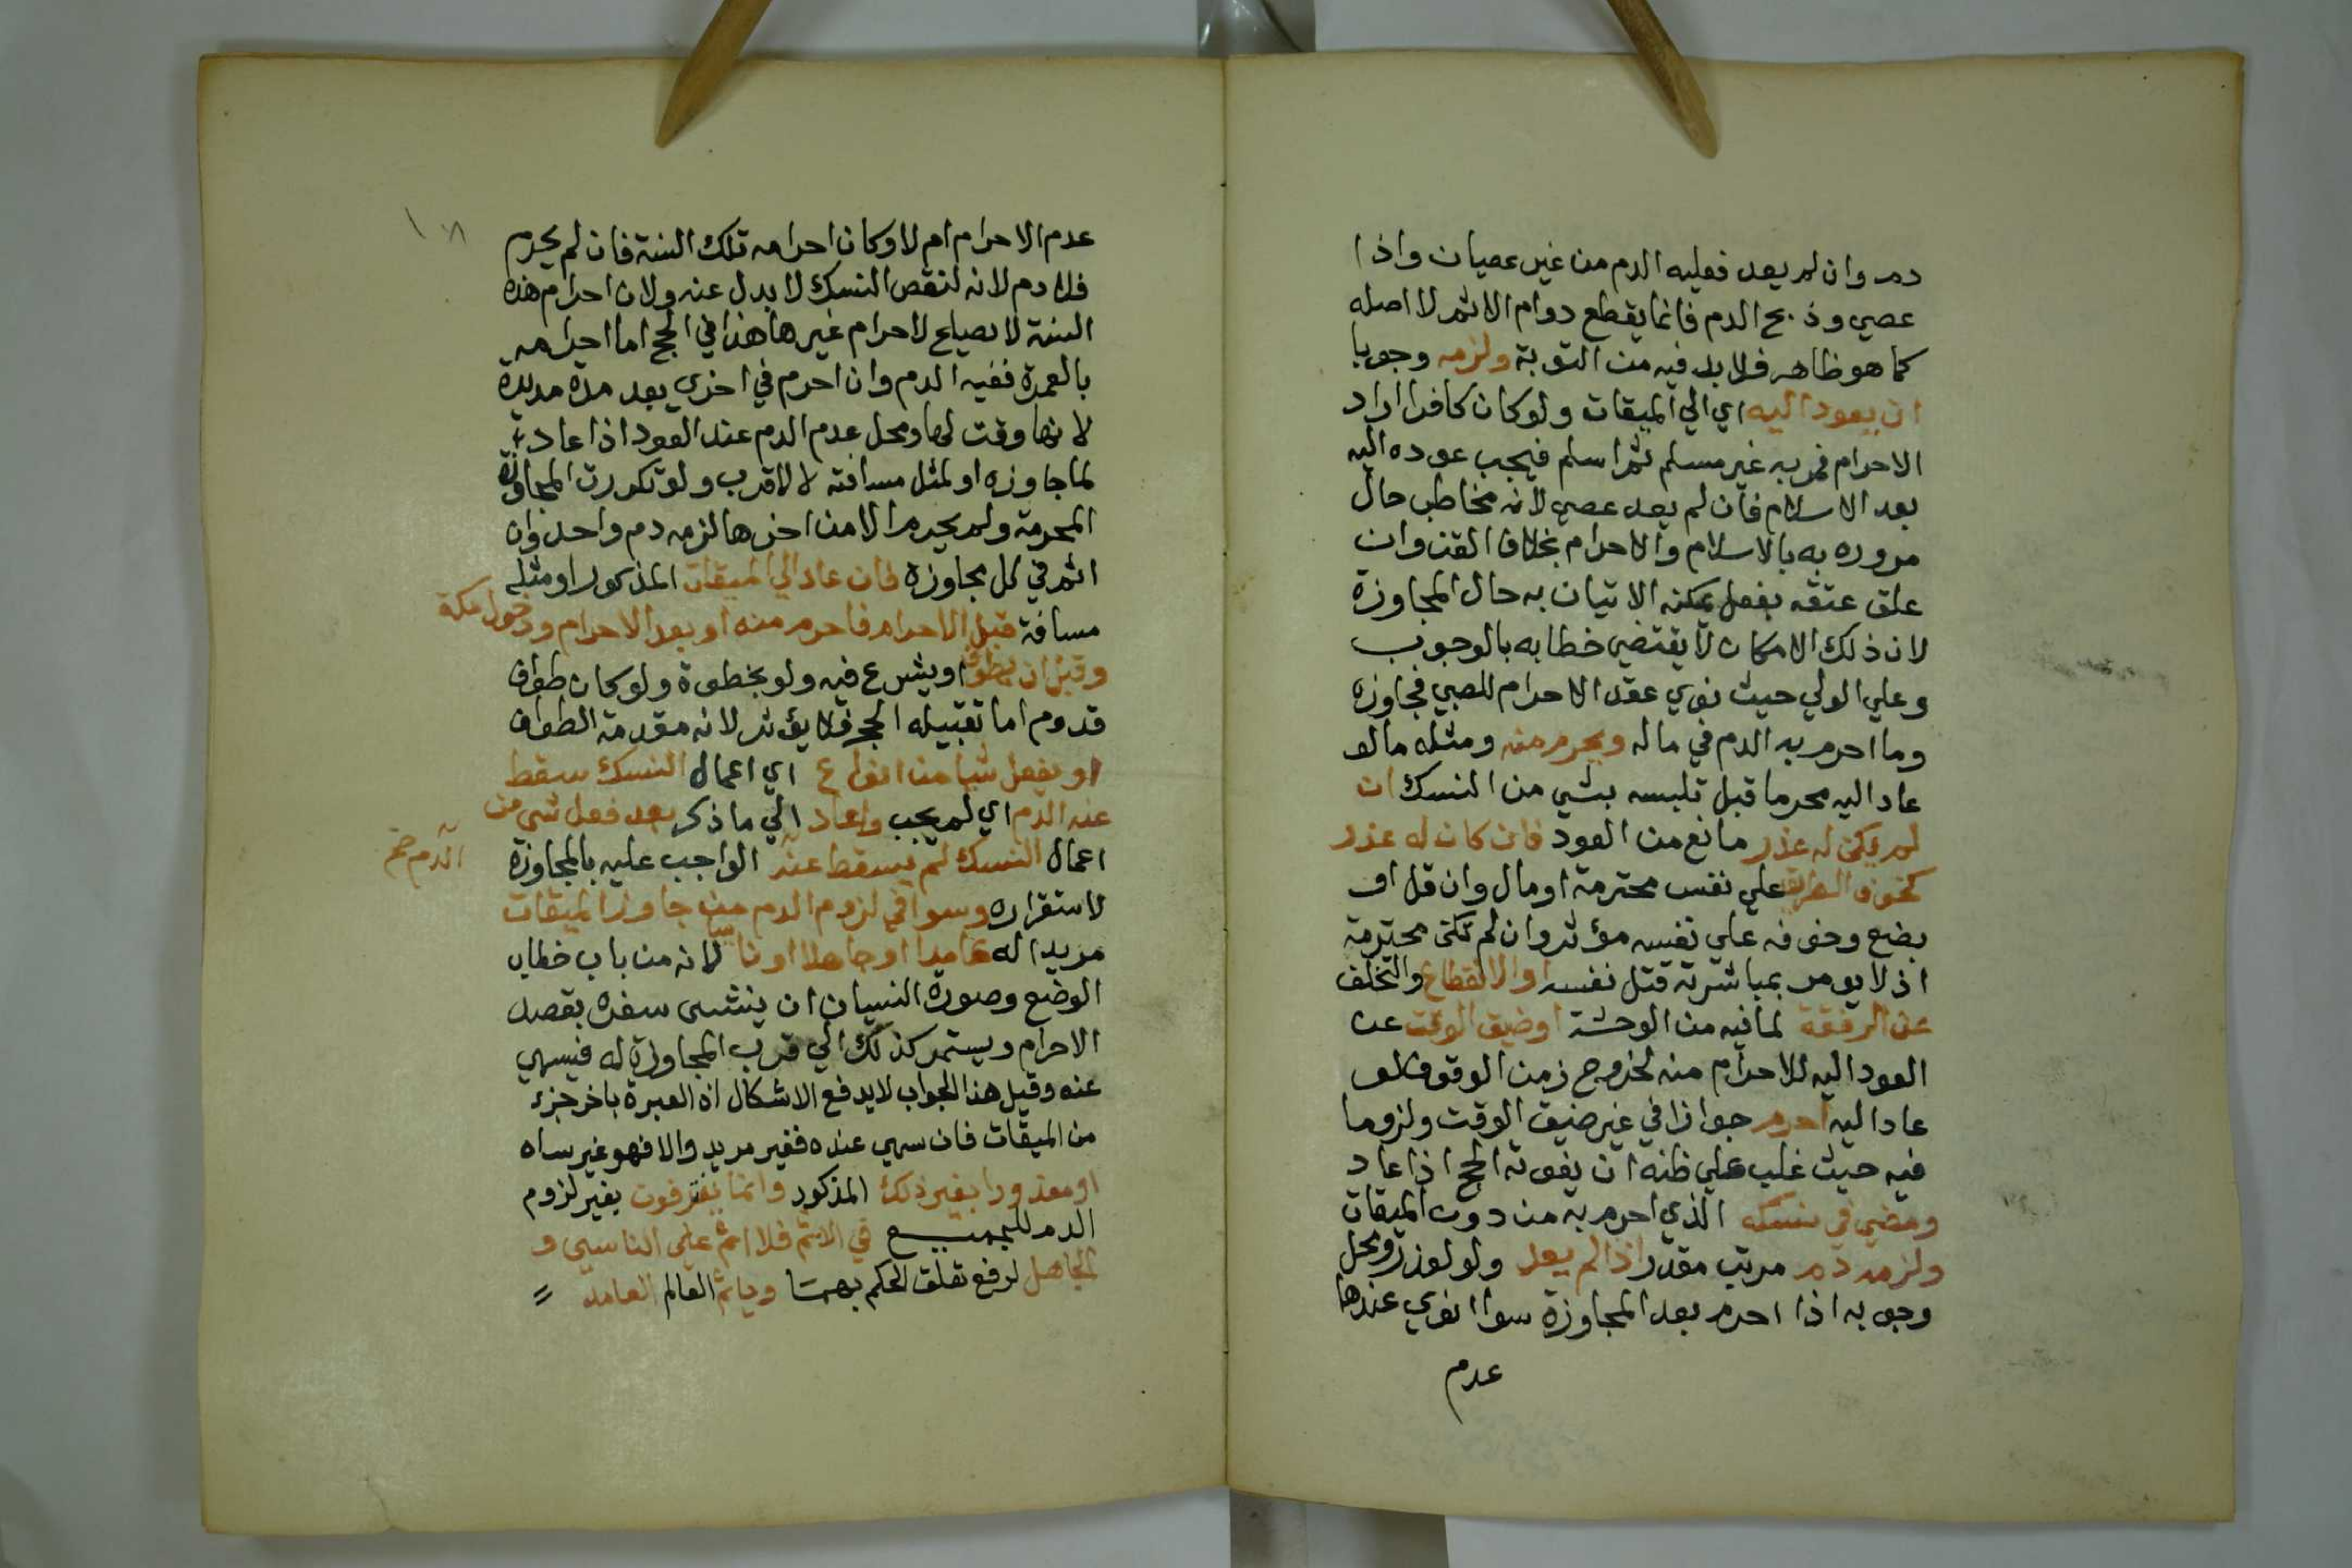 دم وان لم يعد فعليه الدم من غير عصيان واذا
عصي وذبح الدم فانما يقطع دوام الاثم لا اصله
كما هو ظاهر فلا بد فيه من التوبة ولزمه وجوبا
ان يعود اليه اي الي الميقات ولو كان كافرا اراد
الاحرام فمر به غير مسلم ثم اسلم فيجب عوده اليه
بعد الاسلام فان لم يعد عصي لانه مخاطب حال
مروره به بالاسلام والاحرام بخلاف القن وان
علق عتقه بفعل يمكنه الاتيان به حال المجاوزة
لان ذلك الامكان لا يقتضي خطابه بالوجوب
وعلي الولي حيث نوي عقد الاحرام للصبي فجاوزه
وما احرم به الدم في ماله ويحرم منه ومثله ما لو
عاد اليه محرما قبل تلبسه بشي من النسك ان
لم يكن له عذر مانع من العود فان كان له عذر
كخوف الطريق علي نفس محترمة او مال وان قل او
بضع وخوفه علي نفسه مؤثر وان لم تكن محترمة
اذ لا يومر بمباشرته قتل نفسه او الانقطاع والتخلف
عن الرفقة لما فيه من الوحشة او ضيق الوقت عن
العود اليه للاحرام منه لخروج زمن الوقوف لو
عاد اليه احرم جوازا في غير ضيق الوقت ولزوما
فيه حيث غلب علي ظنه ان يفوته الحج اذا عاد
ومضي في نسكه الذي احرم به من دون الميقات
ولزمه دم مرتب مقدر اذا لم يعد ولو لعذر ومحل
وجوبه اذا احرم بعد المجاوزة سوا انوي عندها
عدم
١٨
عدم الاحرام ام لا وكان احرامه تلك السنة فان لم يحرم
فلا دم لانه لنقص النسك لا بدل عنه ولان احرام هذه
السنة لا يصلح لاحرام غيرها هذا في الحج اما احرامه
بالعمرة ففيه الدم وان احرم في اخري بعد مدة مديدة
لانها وقت لها ومحل عدم الدم عند العود اذا عاد
لما جاوزه او لمثل مسافته لا لاقرب ولو تكررت المجاوزة
المحرمة ولم يحرم الا من اخرها لزمه دم واحد وان
اثم في كل مجاوزة فان عاد الي الميقات المذكور او مثله
مسافة قبل الاحرام فاحرم منه او بعد الاحرام ودخول مكة
وقبل ان يطوف او يشرع فيه ولو بخطوة ولو كان طواف
قدوم اما تقبيله الحجر فلا يؤثر لانه مقدمة الطواف
او يفعل شيا من انواع اي اعمال النسك سقط
عنه الدم اي لم يجب وان عاد الي ما ذكر بعد فعل شي من
اعمال النسك لم يسقط عنه الواجب عليه بالمجاوزة
الدم صح
لاستقراره وسوا في لزوم الدم من جاوز الميقات
مريدا له عامدا او جاهلا او ناسيا لانه من باب خطاب
الوضع وصورة النسيان ان ينشى سفره بقصد
الاحرام ويستمر كذلك الي قرب المجاوزة له فيسهي
عنه وقيل هذا الجواب لا يدفع الاشكال اذ العبرة باخر جزء
من الميقات فان سهي عنده فغير مريد والا فهو غير ساه
او معذورا بغير ذلك المذكور وانما يفترقون بغير لزوم
الدم للجميع في الاثم فلا اثم علي الناسي و
الجاهل لرفع تعلق الحكم بهما وياثم العالم العامد